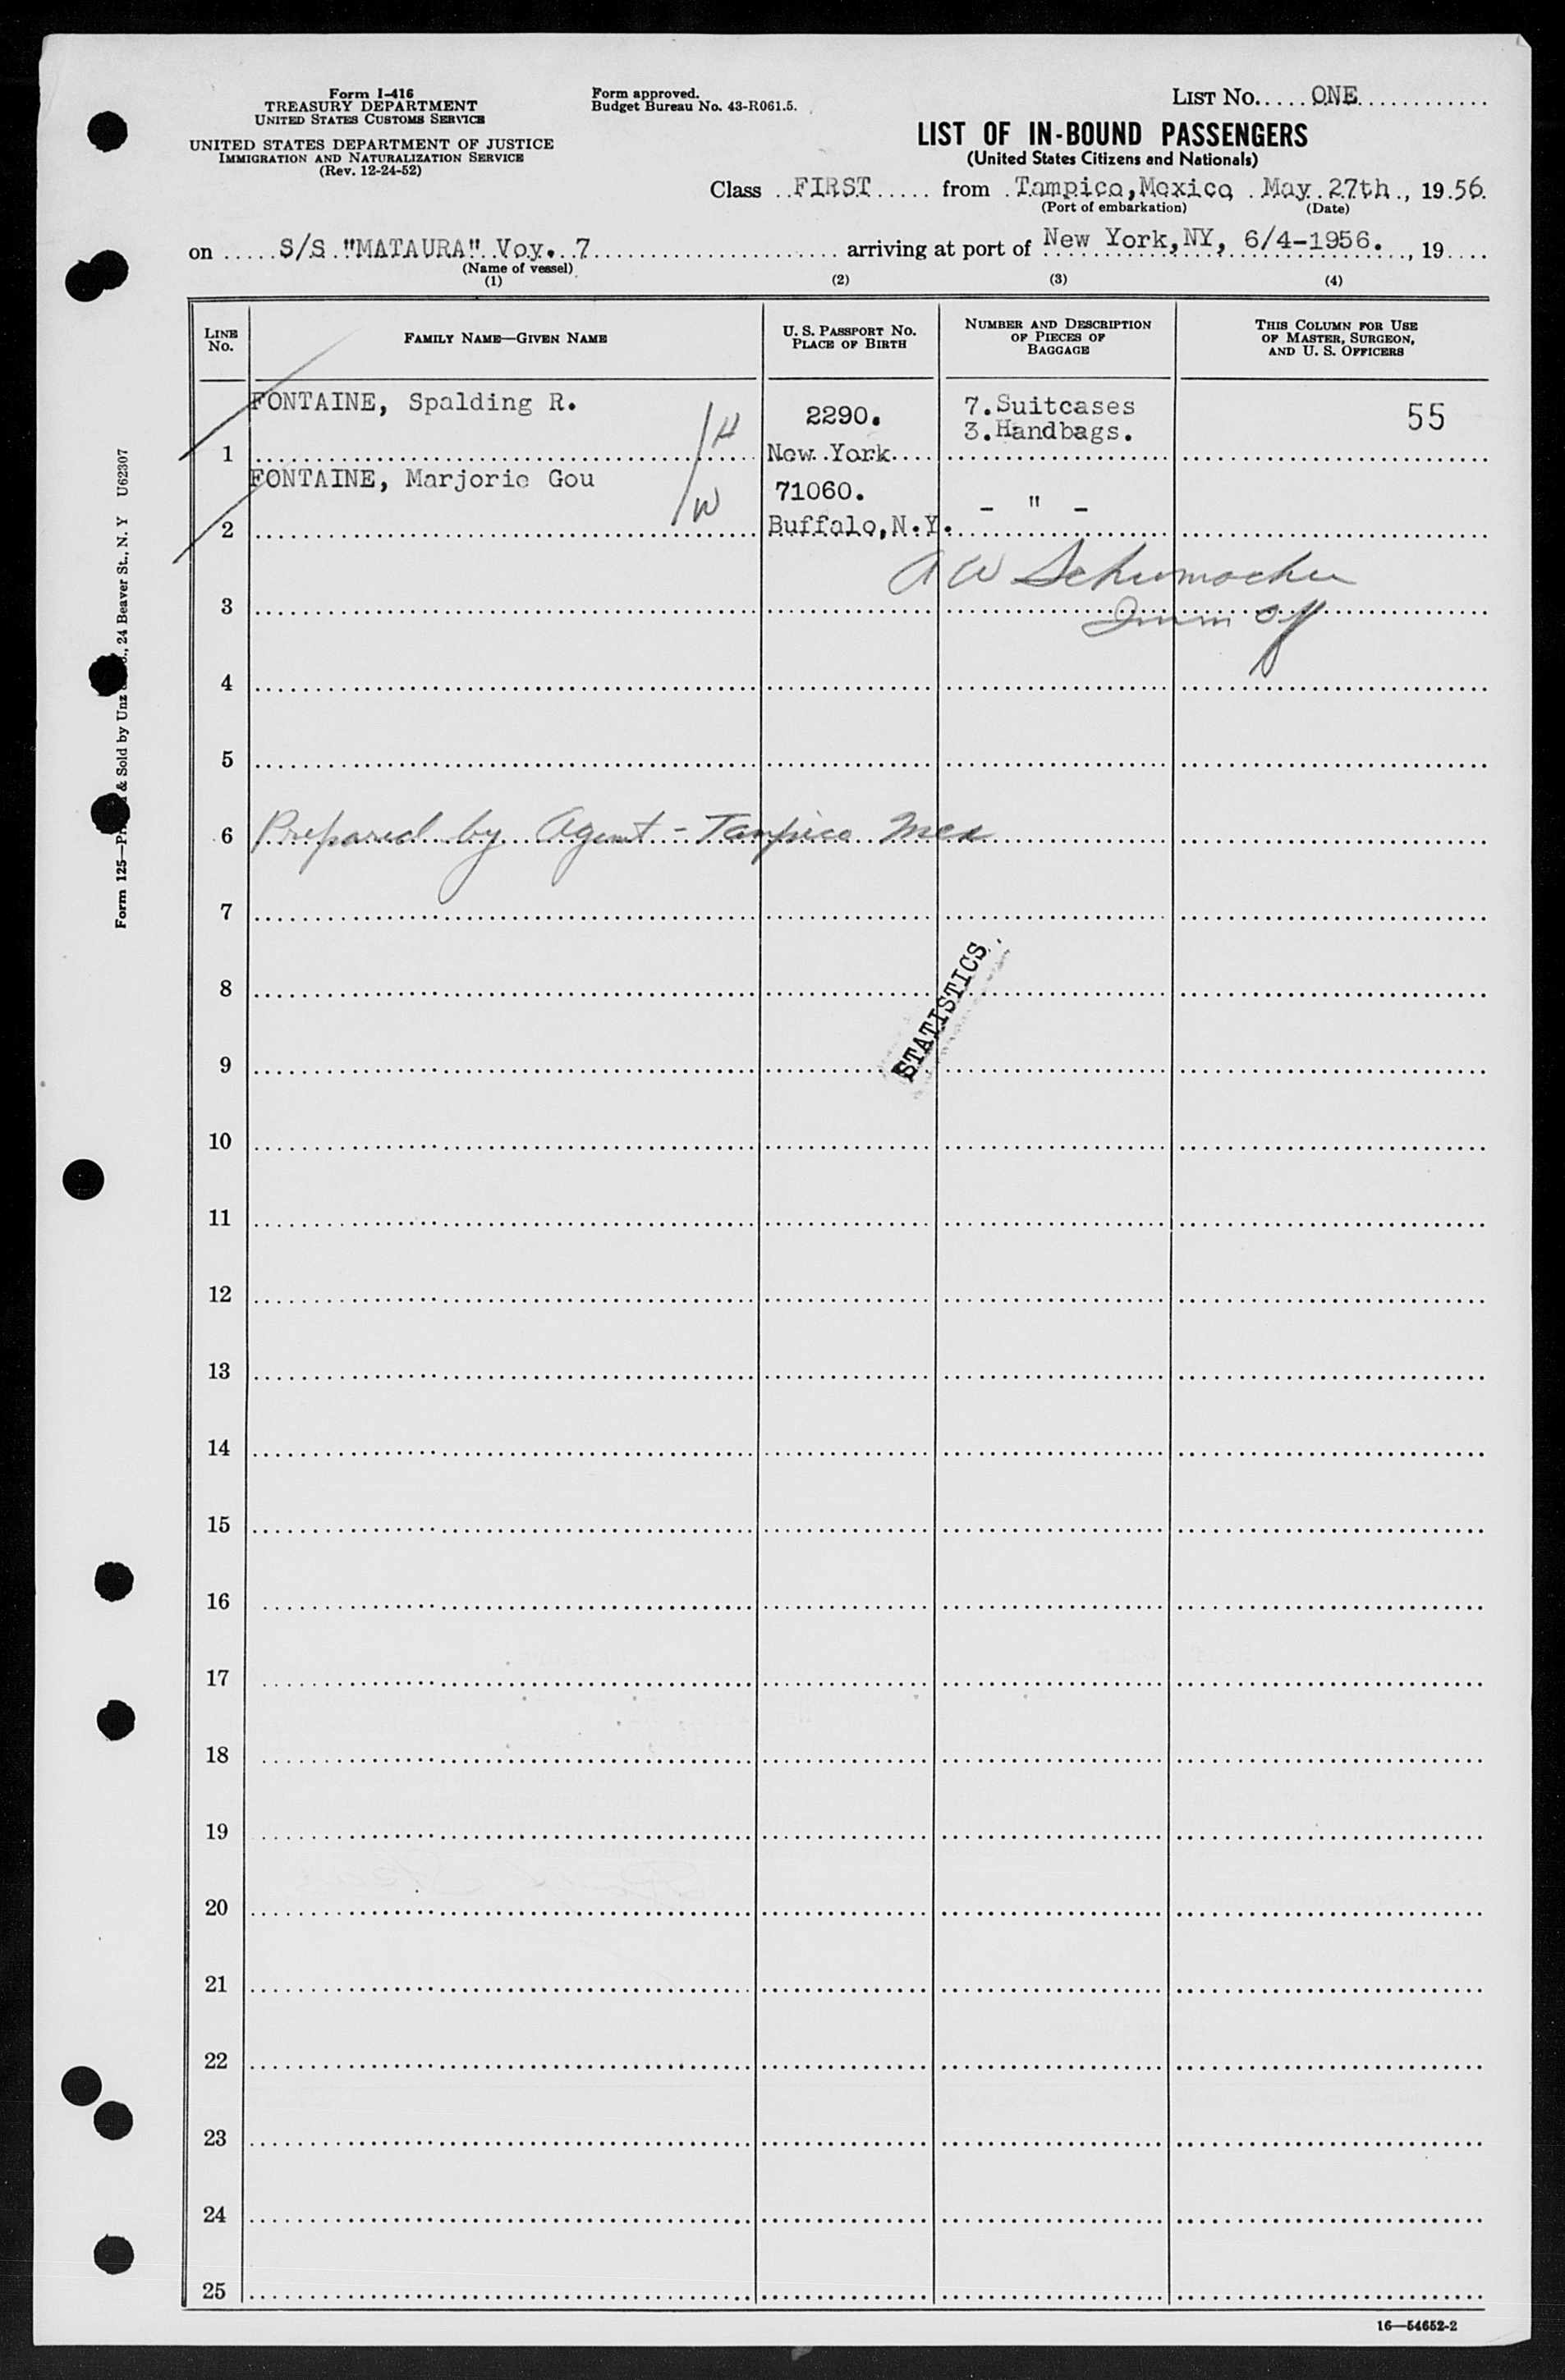 Form I-416
TREASURY DEPARTMENT
UNITED STATES CUSTOMS SERVICE
UNITED STATES DEPARTMENT OF JUSTICE
IMMIGRATION AND NATURALIZATION SERVICE
(Rev. 12-24-52)
Form approved.
Budget Bureau No. 43-R061.5.
LIST NO. ONE
LIST OF IN-BOUND PASSENGERS
(United States Citizens and Nationals)
Class FIRST from Tampico, Mexico May 27th, 1956.
(Port of embarkation) (Date)
on S/S "MATAURA" Voy. 7 arriving at port of New York, NY, 6/4-1956., 19
(Name of vessel)
(1) (2) (3) (4)
LINE NO.
FAMILY NAME—GIVEN NAME
U. S. PASSPORT NO.
PLACE OF BIRTH
NUMBER AND DESCRIPTION
OF PIECES OF
BAGGAGE
THIS COLUMN FOR USE
OF MASTER, SURGEON,
AND U. S. OFFICERS
FONTAINE, Spalding R. 2290. 7.Suitcases 55
H 3.Handbags.
1 New York
FONTAINE, Marjorie Gou 71060. - " -
W
2 Buffalo, N.Y.
A W Schumacher
3 Imm Off
4
5
6 Prepared by Agent - Tampico Mex
7
8
STATISTICS
9
10
11
12
13
14
15
16
17
18
19
20
21
22
23
24
25
16—54652-2
Form 125— & Sold by Unz , 24 Beaver St., N. Y U62307